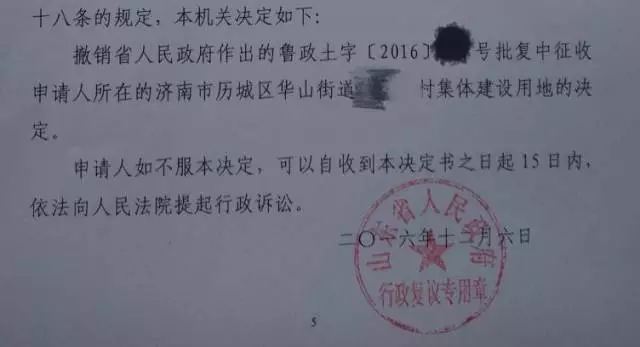 十八条的规定，本机关决定如下：
撤销省人民政府作出的鲁政土字〔2016〕号批复中征收
申请人所在的济南市历城区华山街道村集体建设用地的决
定。
申请人如不服本决定，可以自收到本决定书之日起15日内，
依法向人民法院提起行政诉讼。
二〇一六年十二月六日
山东省人民政府
行政复议专用章
5